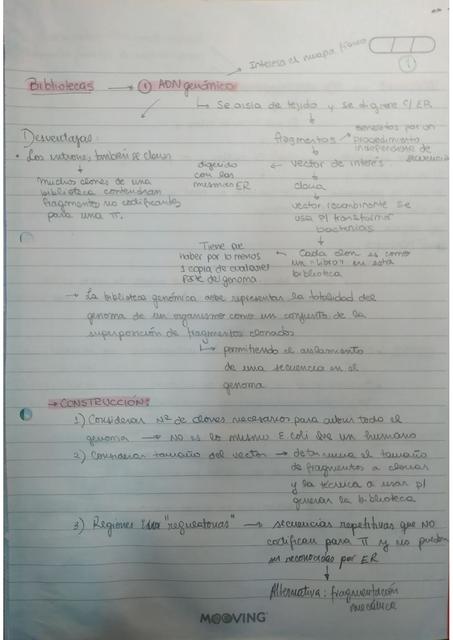 Interesa el mapa físico
①
Bibliotecas → ① ADN genómico
↳ Se aisla de tejido y se digiere c/ ER
Desventajas:
• Los intrones también se clonan
muchos clones de una
biblioteca contendrán
fragmentos no codificantes
para una π.
fragmentos → generados por un
procedimiento
independiente de
secuencia
digerido
con las
mismas ER
← vector de interés
clona
vector recombinante se
usa p/ transformar
bacterias
Cada clon es como
un "libro" en esta
biblioteca
Tiene que
haber por lo menos
1 copia de cualquier
parte del genoma.
→ La biblioteca genómica debe representar la totalidad del
genoma de un organismo como un conjunto de la
superposición de fragmentos clonados
↳ permitiendo el aislamiento
de una secuencia en el
genoma
→ CONSTRUCCIÓN:
1) Considerar Nº de clones necesarios para cubrir todo el
genoma → NO es lo mismo E coli que un humano
2) Considerar tamaño del vector → determina el tamaño
de fragmentos a clonar
y la técnica a usar p/
generar la biblioteca
3) Regiones "regulatorias" → secuencias repetitivas que NO
codifican para π y no pueden
ser reconocidas por ER
Alternativa: fragmentación
mecánica
MOOVING